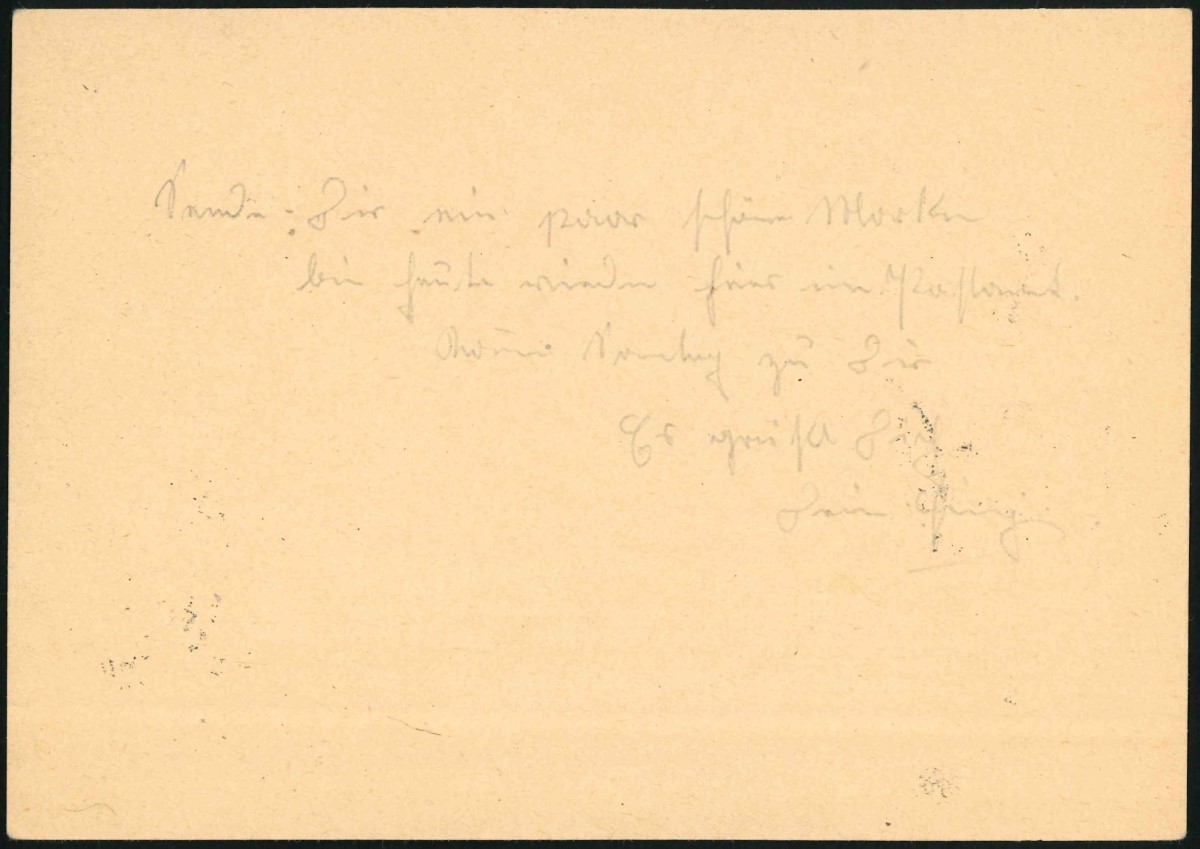 Sende Dir ein paar schöne Marken
bin heute wieder hier im Postamt.
Komme Sonntag zu Dir
Es grüßt Dich
Dein